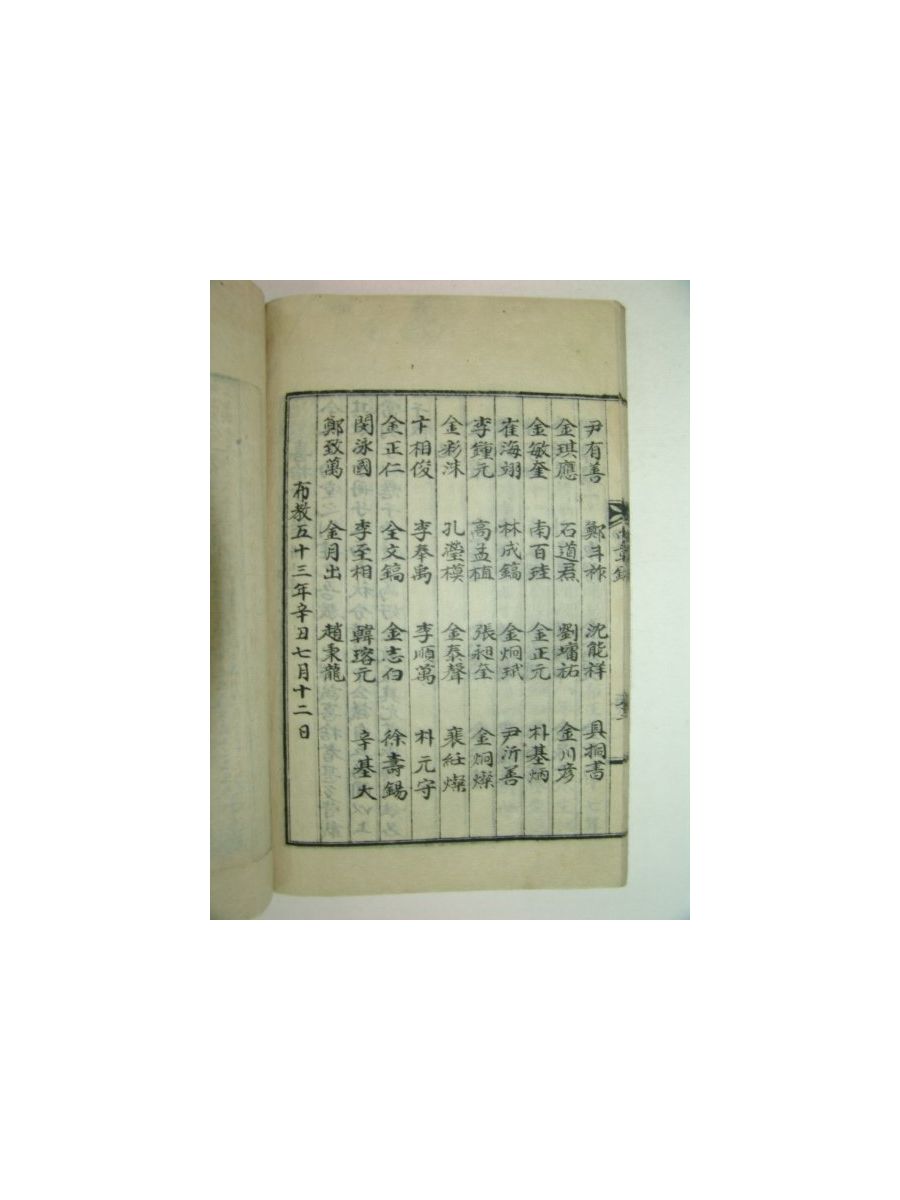 尹有善 鄭斗祚 沈能祥 具桐書
金琪應 石道君 劉 祐 金川彦
金敏奎 南百珪 金正元 朴基炳
崔海翊 林成鎬 金炯珉 尹沂善
李鍾元 高孟植 張昶奎 金炯燦
金彩洙 孔瀅模 金泰聲 裵 燦
卞相俊 李奉禹 李順萬 朴元守
金正仁 全文鎬 金志白 徐壽錫
閔泳國 李至相 韓瑢元 辛基大
鄭致萬 金月出 趙秉龍
布教五十三年辛丑七月十二日